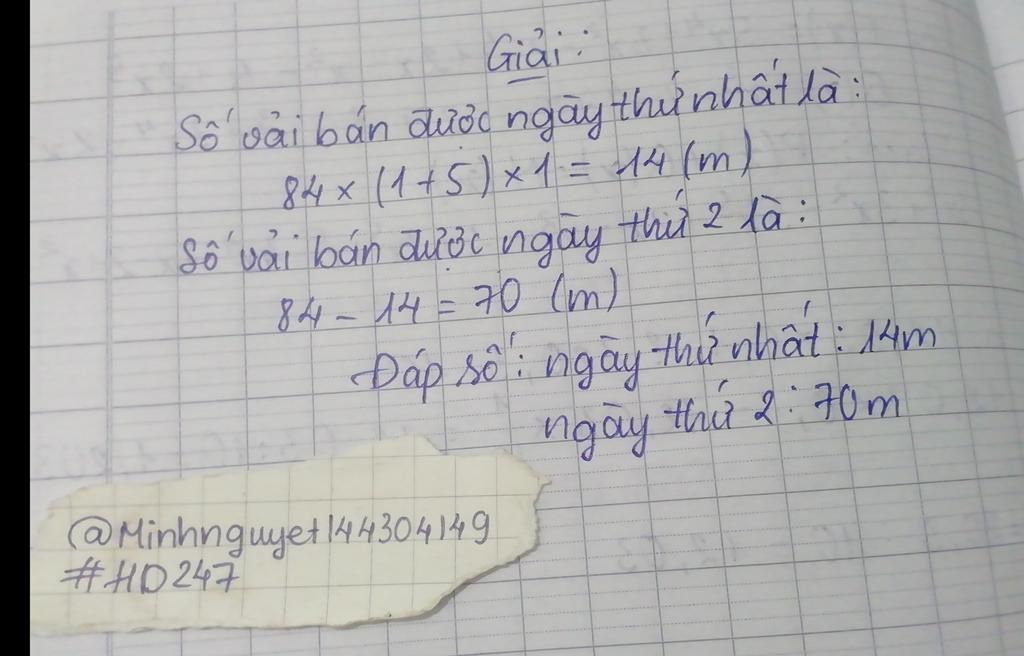 Giải:
Số vải bán được ngày thứ nhất là:
84 x (1 + 5) x 1 = 14 (m)
Số vải bán được ngày thứ 2 là:
84 - 14 = 70 (m)
Đáp số: ngày thứ nhất: 14m
ngày thứ 2: 70m
@Minhnguyet144304149
#HD247